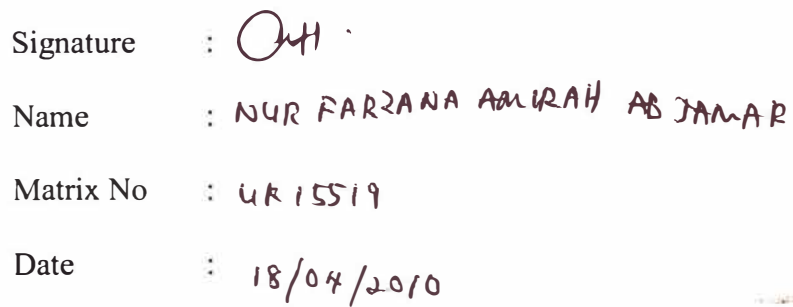 Signature :
Name : NUR FARZANA AMIRAH AB JAMAR
Matrix No : UK15519
Date : 18/04/2010